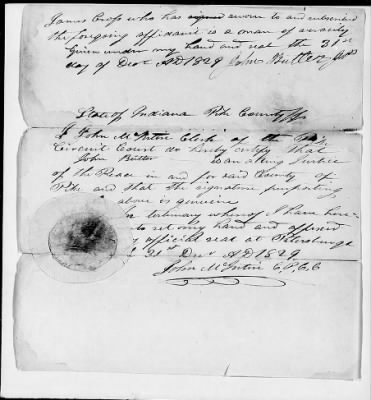 James Cross who has signed sworn to and subscribed
the forgoing affidavit is a man of veracity
Given under my hand and seal the 31st
day of Decr AD 1829 John Butler
State of Indiana Pike County Ss
I John McIntire Clerk of the Pike
Circuit Court do hereby certify that
John Butler is an acting Justice
of the Peace in and for said County of
Pike and that the signature purporting
above is genuine
In testimony whereof I have here
to set my hand and affixed
my official seal at Petersburgh
31st Decr AD 1829
John McIntire C,P,C,C